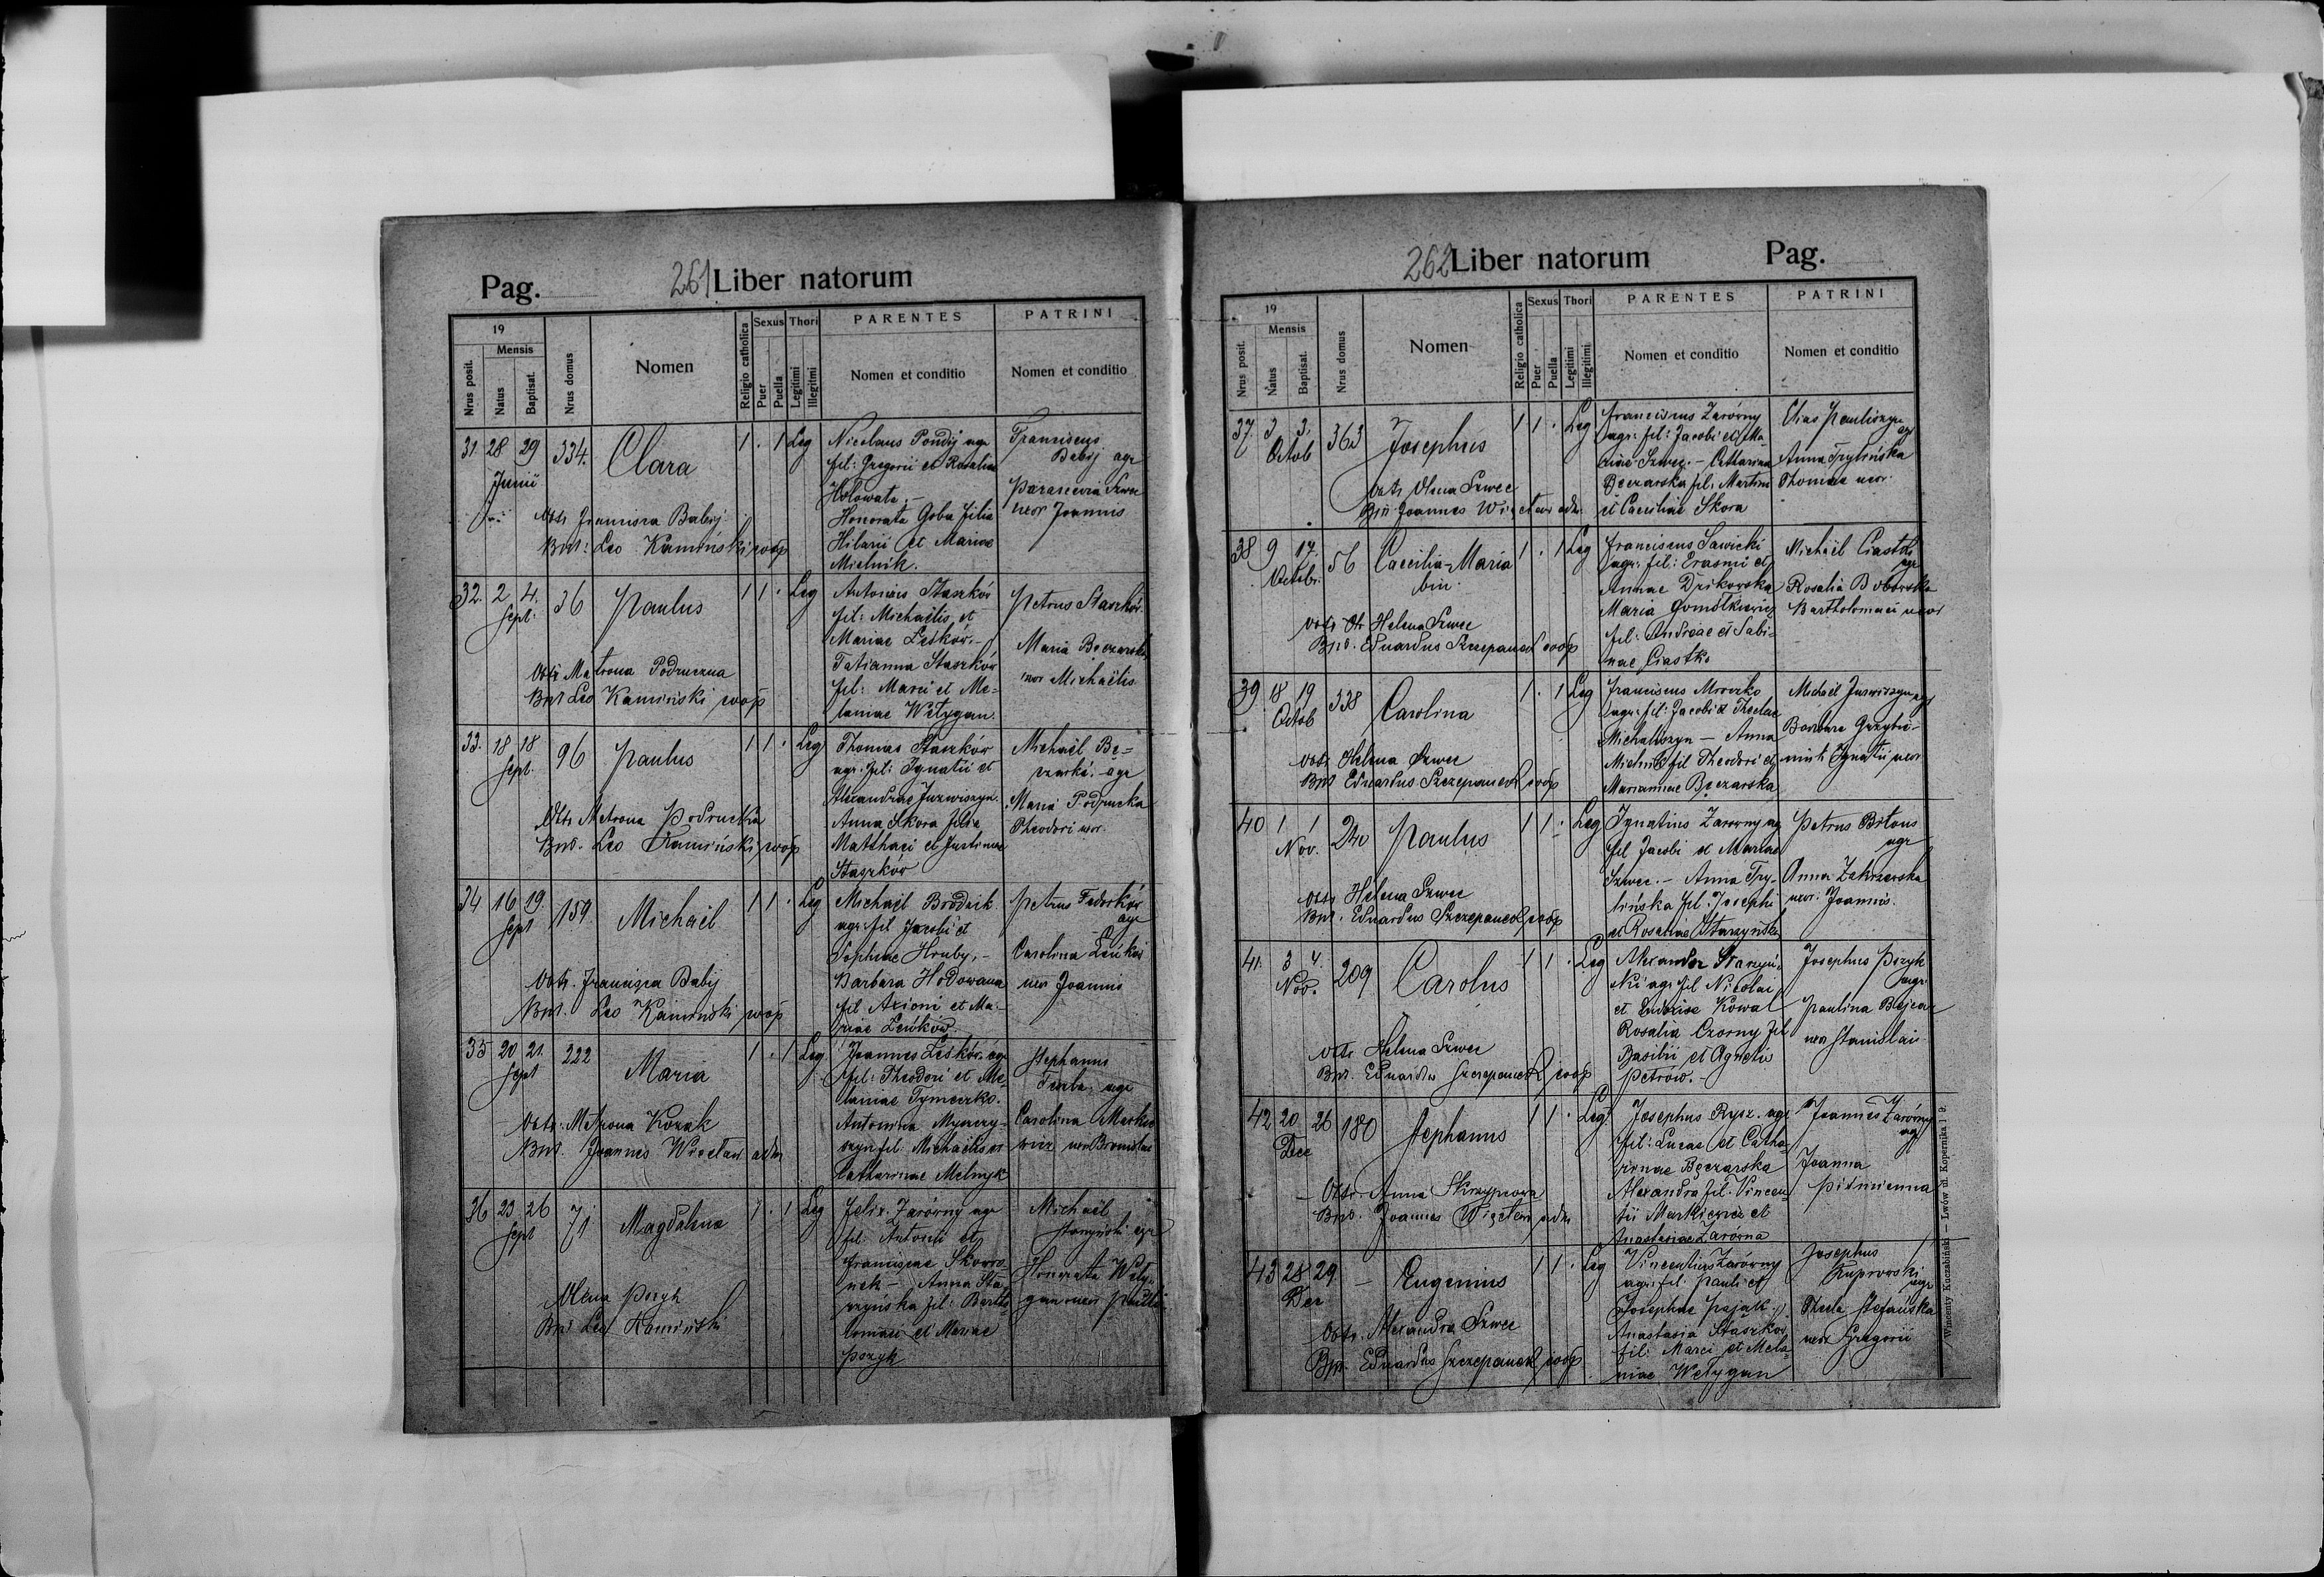 Pag.
261 Liber natorum
19
Mensis
Nrus posit.
Natus
Baptisat.
Nrus domus
Nomen
Religio catholica
Sexus
Puer
Puella
Thori
Legitimi
Illegitmi
PARENTES
Nomen et conditio
PATRINI
Nomen et conditio
31. 28 29 334. Clara 1 . 1 Leg
Junii
Obstr Francisca Babij
Bapt: Leo Kamiński coop
Nicolaus Pondij agr
fil: Gregorii et Rosaliae
Holowata. -
Honorata Goba filia
Hilarii et Mariae
Mielnik.
Franciscus
Babij agr
Parascevia Szwec
uxor Joannis
32. 2 4. 36 Paulus 1 1 . Leg
Sept.
Obstr Matrona Podruczna
Bapt Leo Kamiński coop
Antonius Staszków
fil: Michaëlis et
Mariae Leśków. -
Tatianna Staszków
fil: Marci et Me-
laniae Wetygan.
Petrus Staszków
Maria Bęczarska
uxor Michaëlis
33. 18 18 96 Paulus 1 1 . Leg
Sept.
Obstr Matrona Podrucka
Bapt. Leo Kamiński coop
Thomas Staszków
agr. fil: Ignatii et
Alexandrae Juzwiszyn.
Anna Skora filia
Matthaei et Justinae
Staszków
Michaël Bę=
czarski agr
Maria Podrucka
Theodori uxor.
34 16 19. 159. Michaël 1 1 . Leg
Sept
Obstr. Francisca Babij
Bapt. Leo Kamiński coop
Michaël Brodzik
agr. fil Jacobi et
Sophiae Hruby. -
Barbara Hodowana
fil Axioni et Ma-
riae Leśków
Petrus Fedorków
agr
Carolina Leśków
uxor Joannis
35 20 21. 222 Maria 1 . 1 Leg
Sept
Obstr. Matrona Kozak
Bapt. Joannes Więcław adm
Joannes Leśków agr
fil: Theodori et Me-
laniae Tymeczko.
Antonina
fil Michaëlis et
Catharinae Melnyk
Stephanus
agr
Carolina Markie
wicz uxor Bronislai
36 23 26 71 Magdalena 1 . 1 Leg
Sept
Olena Pszyk
Bapt Leo Kamiński
Felix Zarówny agr
fil: Antonii et
Franciscae Skowro
nek - Anna Sta-
rzyńska fil: Bartho
lomaei et Mariae
Pszyk
Michaël
Starzyński agr
Honorata Wety-
gan uxor Pauli
262 Liber natorum
Pag.
19
Mensis
Nrus posit.
Natus
Baptisat.
Nrus domus
Nomen
Religio catholica
Sexus
Puer
Puella
Thori
Legitimi
Illegitimi
PARENTES
Nomen et conditio
PATRINI
Nomen et conditio
37. 3 3. 363 Josephus 1 1 . Leg
Octob
Obstr Olena Szwec
Bapt Joannes Więcław adm
Franciscus Zarówny
agr: fil: Jacobi et Ma-
riae Szwec. - Catharina
Bęczarska fil: Martini
et Caeciliae Skora
Elias Pauliszyn
agr
Anna Trylińska
Thomae uxor
38 9 17. 56 Caecilia-Maria 1 . 1 Leg
Octobr. bin.
Obstr Helena Szwec
Bapt. Eduardus Szczepanek coop
Franciscus Sawicki
agr. fil: Erasmi et
Annae Drikowska
Maria Gomółkiewicz
fil: Andreae et Sabi-
nae Ciastko
Michaël Ciastko
agr
Rosalia Boborska
Bartholomaei uxor
39 18 19 338 Carolina 1 . 1 Leg
Octob
Obstr Helena Szwec
Bapt Eduardus Szczepanek coop
Franciscus Mroczko
agr: fil: Jacobi et Theclae
Michaliszyn - Anna
Mielnik fil Theodori et
Mariannae Bęczarska
Michaël Juzwiszyn agr
Barbara
Ignatii uxor
40 1 1 240 Paulus 1 1 . Leg
Nov.
Obstr Helena Szwec
Bapt. Eduardus Szczepanek coop
Ignatius Zarówny ag
fil Jacobi et Mariae
Szwec. - Anna Try-
lińska fil. Josephi
et Rosaliae Starzyńska
Petrus Bitous
agr
Anna Zakrzewska
uxor Joannis.
41. 3 4. 209 Carolus 1 1 . Leg
Nov.
Obstr Helena Szwec
Bapt. Eduardus Szczepanek coop
Alexander Starzyń-
ski agr. fil Nicolai
et Ludovicae Kowal
Rosalia Czorny fil
Basilii et Agnetis
Petrów. -
Josephus Pszyk
agr
Paulina
uxor Stanislai
42 20 26 180 Stephanus 1 1 . Leg
Dec
Obstr. Anna Skrzypowa
Bapt. Joannes Więcław adm
Josephus Rysz. agr
fil: Lucae et Catha-
rinae Bęczarska
Alexandra fil. Vincen
tii Markiewicz et
Anastasiae Zarówna
Joannes Zarówny
agr
Joanna
Piśmienna
43 28 29 - Eugenius 1 1 . Leg
Dec
Obstr. Alexandra Szwec
Bapt. Eduardus Szczepanek coop
Vincentius Zarówny
agr: fil: Pauli et
Josephae Pająk. -
Anastasia Staszków
fil: Marci et Mela-
niae Wetygan
Josephus
Kuprowski
agr
Thecla Stefańska
uxor Gregorii
Wincenty Kuczabiński — Lwów ul. Kopernika l 9.